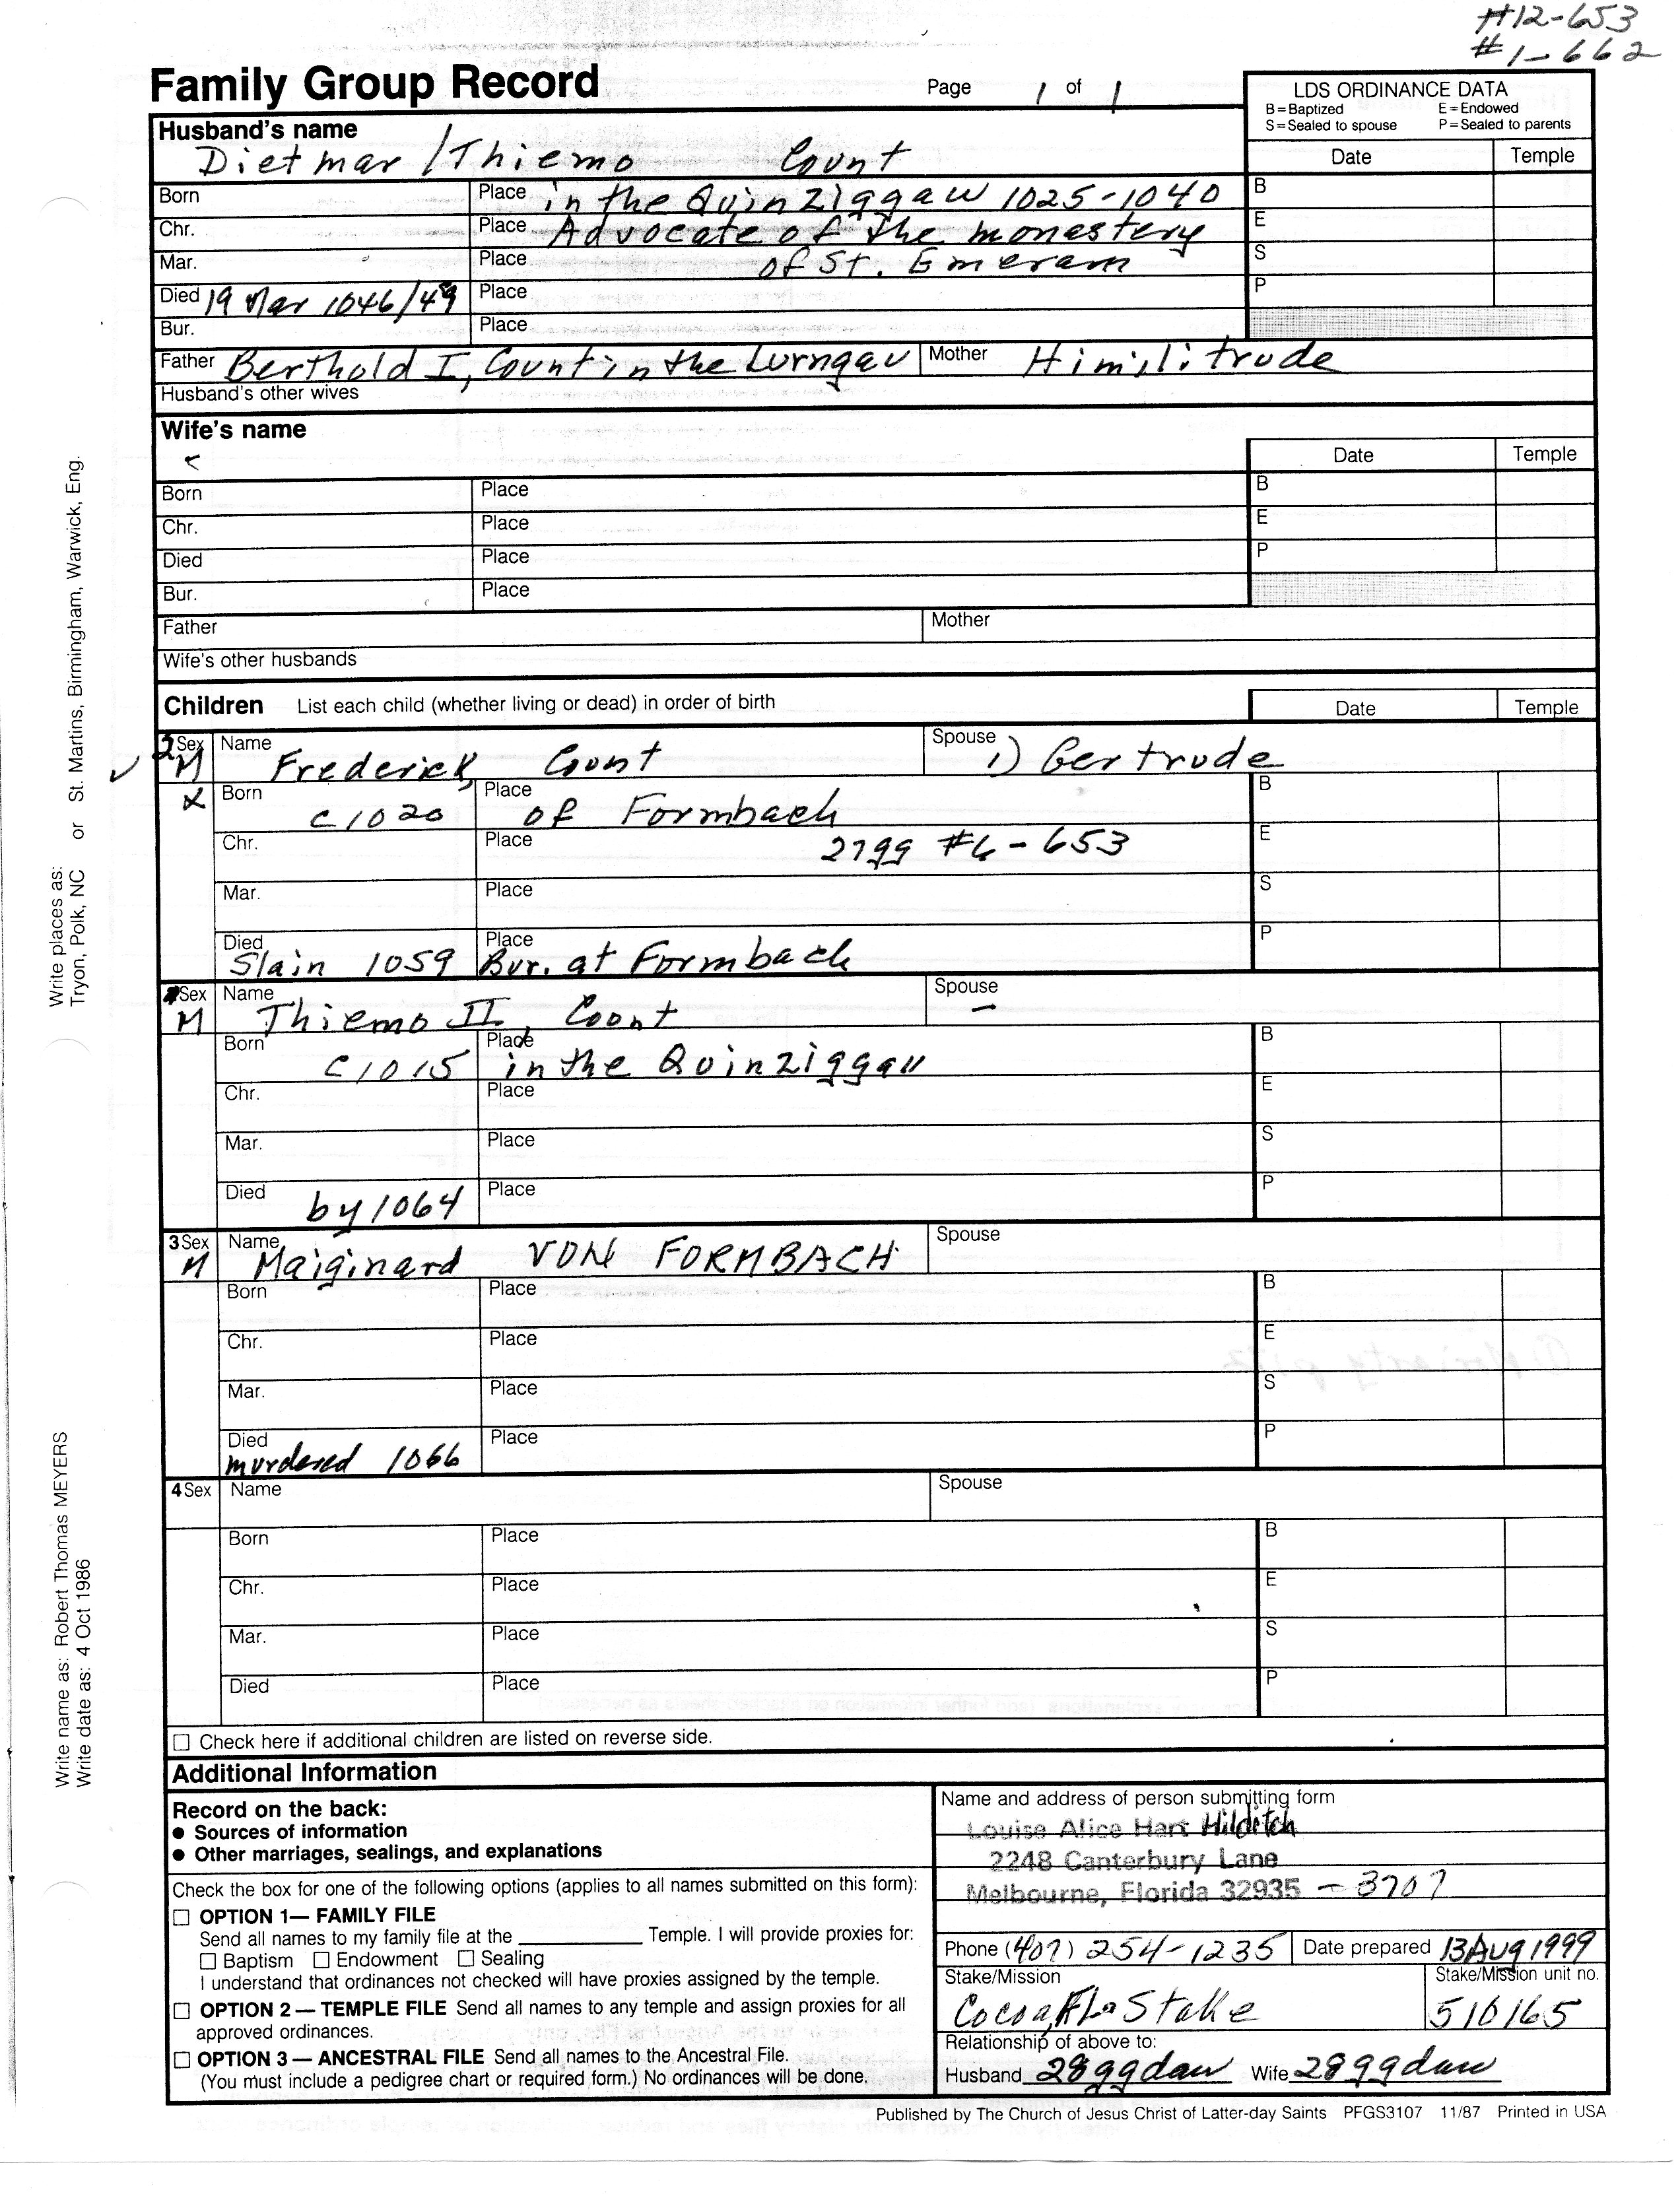 #12-653
#1-662
Family Group Record
Page 1 of 1
LDS ORDINANCE DATA
B=Baptized E=Endowed
S=Sealed to spouse P=Sealed to parents
Husband's name
Dietmar /Thiemo Count
Date Temple
Born Place in the Quinziggaw 1025-1040 B
Chr. Place Advocate of the monastery E
Mar. Place of St. Emeram S
Died 19 Mar 1046/49 Place P
Bur. Place
Father Berthold I, Count in the Lurngau Mother Himilitrude
Husband's other wives
Wife's name
Date Temple
Born Place B
Chr. Place E
Died Place P
Bur. Place
Father Mother
Wife's other husbands
Children List each child (whether living or dead) in order of birth Date Temple
2 Sex Name Spouse
M Frederick, Count 1) Gertrude
X Born c1020 Place of Formbach B
Chr. Place 27gg #6-653 E
Mar. Place S
Died Place P
Slain 1059 Bur. at Formbach
Sex Name Spouse
M Thiemo II, Count –
Born c1015 Place in the Quinziggau B
Chr. Place E
Mar. Place S
Died by 1064 Place P
3 Sex Name Spouse
M Maiginard VON FORMBACH
Born Place B
Chr. Place E
Mar. Place S
Died Place P
murdered 1066
4 Sex Name Spouse
Born Place B
Chr. Place E
Mar. Place S
Died Place P
Check here if additional children are listed on reverse side.
Additional Information
Record on the back:
● Sources of information
● Other marriages, sealings, and explanations
Check the box for one of the following options (applies to all names submitted on this form):
OPTION 1— FAMILY FILE
Send all names to my family file at the ______ Temple. I will provide proxies for:
Baptism Endowment Sealing
I understand that ordinances not checked will have proxies assigned by the temple.
OPTION 2 — TEMPLE FILE Send all names to any temple and assign proxies for all
approved ordinances.
OPTION 3 — ANCESTRAL FILE Send all names to the Ancestral File.
(You must include a pedigree chart or required form.) No ordinances will be done.
Name and address of person submitting form
Louise Alice Hart Hilditch
2248 Canterbury Lane
Melbourne, Florida 32935 - 3707
Phone (407) 254-1235 Date prepared 13 Aug 1999
Stake/Mission Stake/Mission unit no.
Cocoa, FLa Stake 510165
Relationship of above to:
Husband 28ggdau Wife 28ggdau
Published by The Church of Jesus Christ of Latter-day Saints PFGS3107 11/87 Printed in USA
Write places as: Tryon, Polk, NC or St. Martins, Birmingham, Warwick, Eng.
Write name as: Robert Thomas MEYERS
Write date as: 4 Oct 1986